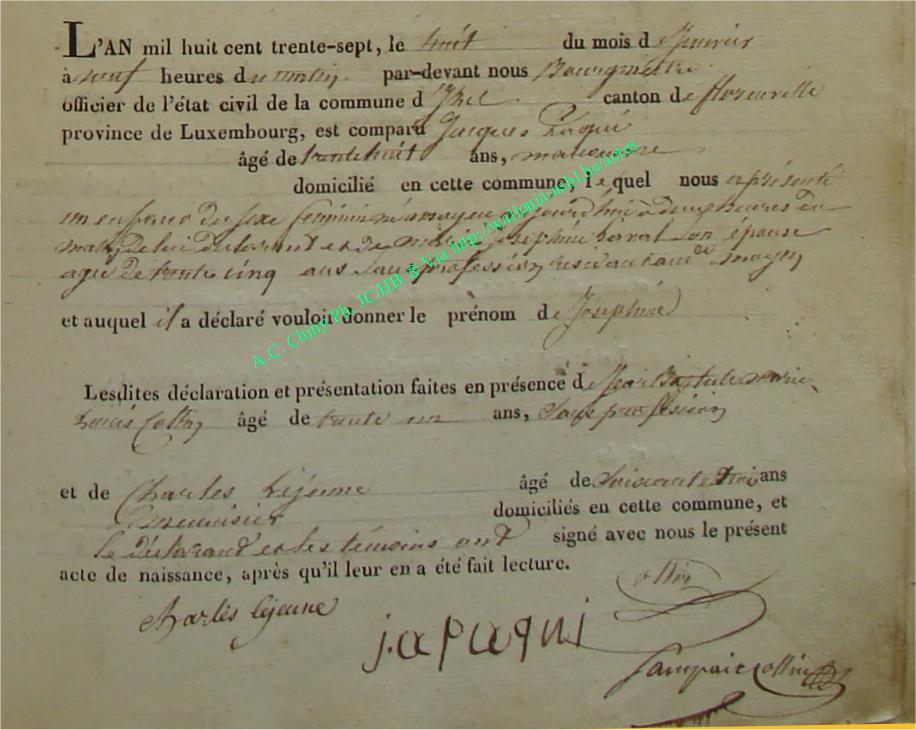 L'AN mil huit cent trente-sept, le huit du mois de Janvier
à neuf heures du matin. par-devant nous Bourgmestre
officier de l'état civil de la commune d'Izel canton de florenville
province de Luxembourg, est comparu Jacques Paquié
âgé de trente huit ans,
domicilié en cette commune, lequel nous a présenté
un enfant du sexe féminin né aujourd'hui à deux heures du
matin, de lui déclarant et de Josephine son épouse
agée de trente cinq ans sans profession
et auquel il a déclaré vouloir donner le prénom de Josephine
Lesdites déclaration et présentation faites en présence de Jean Baptiste marie
Louis Collin âgé de trente un ans, sans profession
et de Charles Lejeune âgé de soixante trois ans
menuisier domiciliés en cette commune, et
le déclarant et les témoins ont signé avec nous le présent
acte de naissance, après qu'il leur en a été fait lecture.
Collin
Charles Lejeune
j.a paqui
Collin
A.C. Chiny Ph. JCHB @ Via http://wallonia-asbl.be/actes